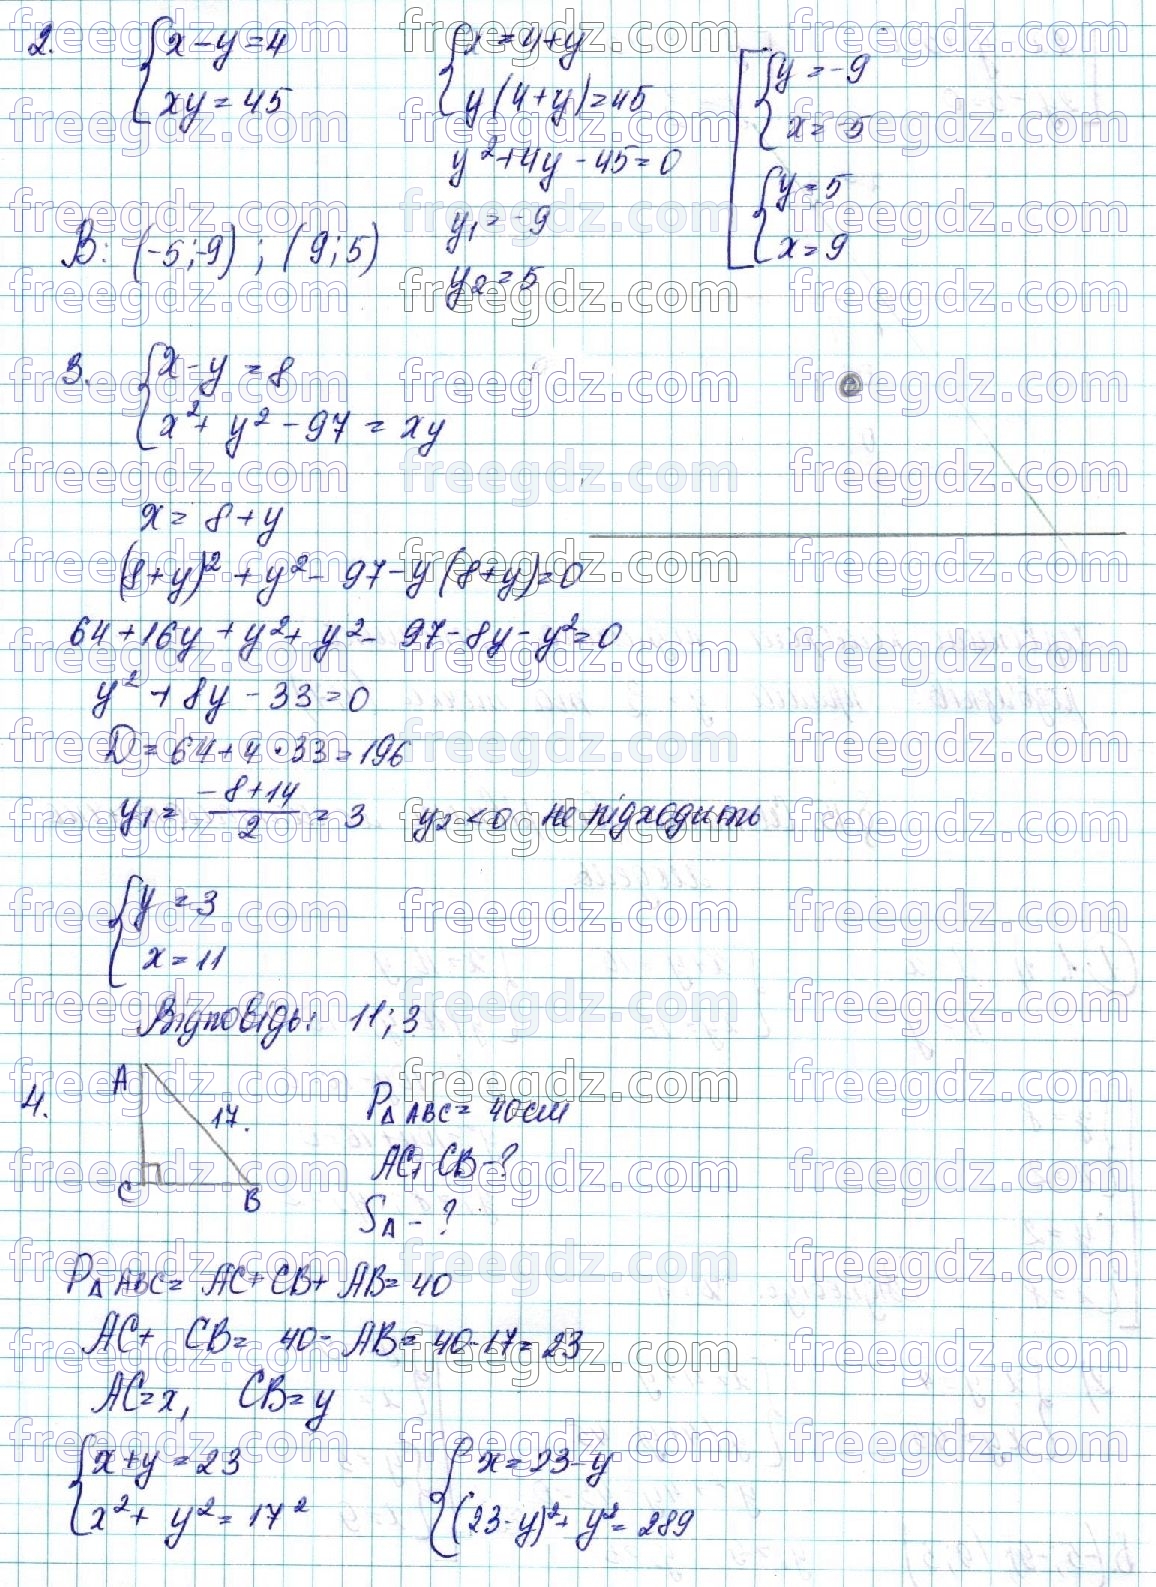 2. { x - y = 4
xy = 45
{ x = 4 + y
y(4+y) = 45
y² + 4y - 45 = 0
y₁ = -9
y₂ = 5
[ { y = -9
x = -5
{ y = 5
x = 9
В: (-5;-9) ; (9;5)
3. { x - y = 8
x² + y² - 97 = xy
x = 8 + y
(8+y)² + y² - 97 - y(8+y) = 0
64 + 16y + y² + y² - 97 - 8y - y² = 0
y² + 8y - 33 = 0
D = 64 + 4·33 = 196
y₁ = (-8+14)/2 = 3 y₂ < 0 не підходить
{ y = 3
x = 11
Відповідь: 11; 3
4. A
17.
C B
P△ABC = 40 см
AC, CB - ?
S△ - ?
P△ABC = AC + CB + AB = 40
AC + CB = 40 - AB = 40-17 = 23
AC = x, CB = y
{ x + y = 23
x² + y² = 17²
{ x = 23 - y
(23-y)² + y² = 289
freegdz.com